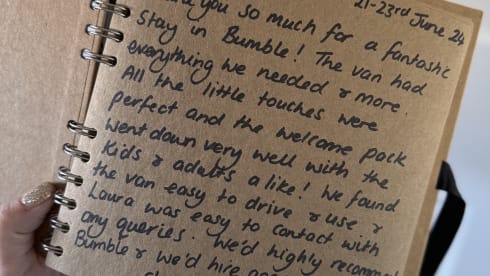 21-23rd June 24
you so much for a fantastic
stay in Bumble! The van had
everything we needed & more.
All the little touches were
perfect and the welcome pack
went down very well with the
kids & adults a like! We found
the van easy to drive & use &
Laura was easy to contact with
any queries. We'd highly recomm
Bumble & we'd hire